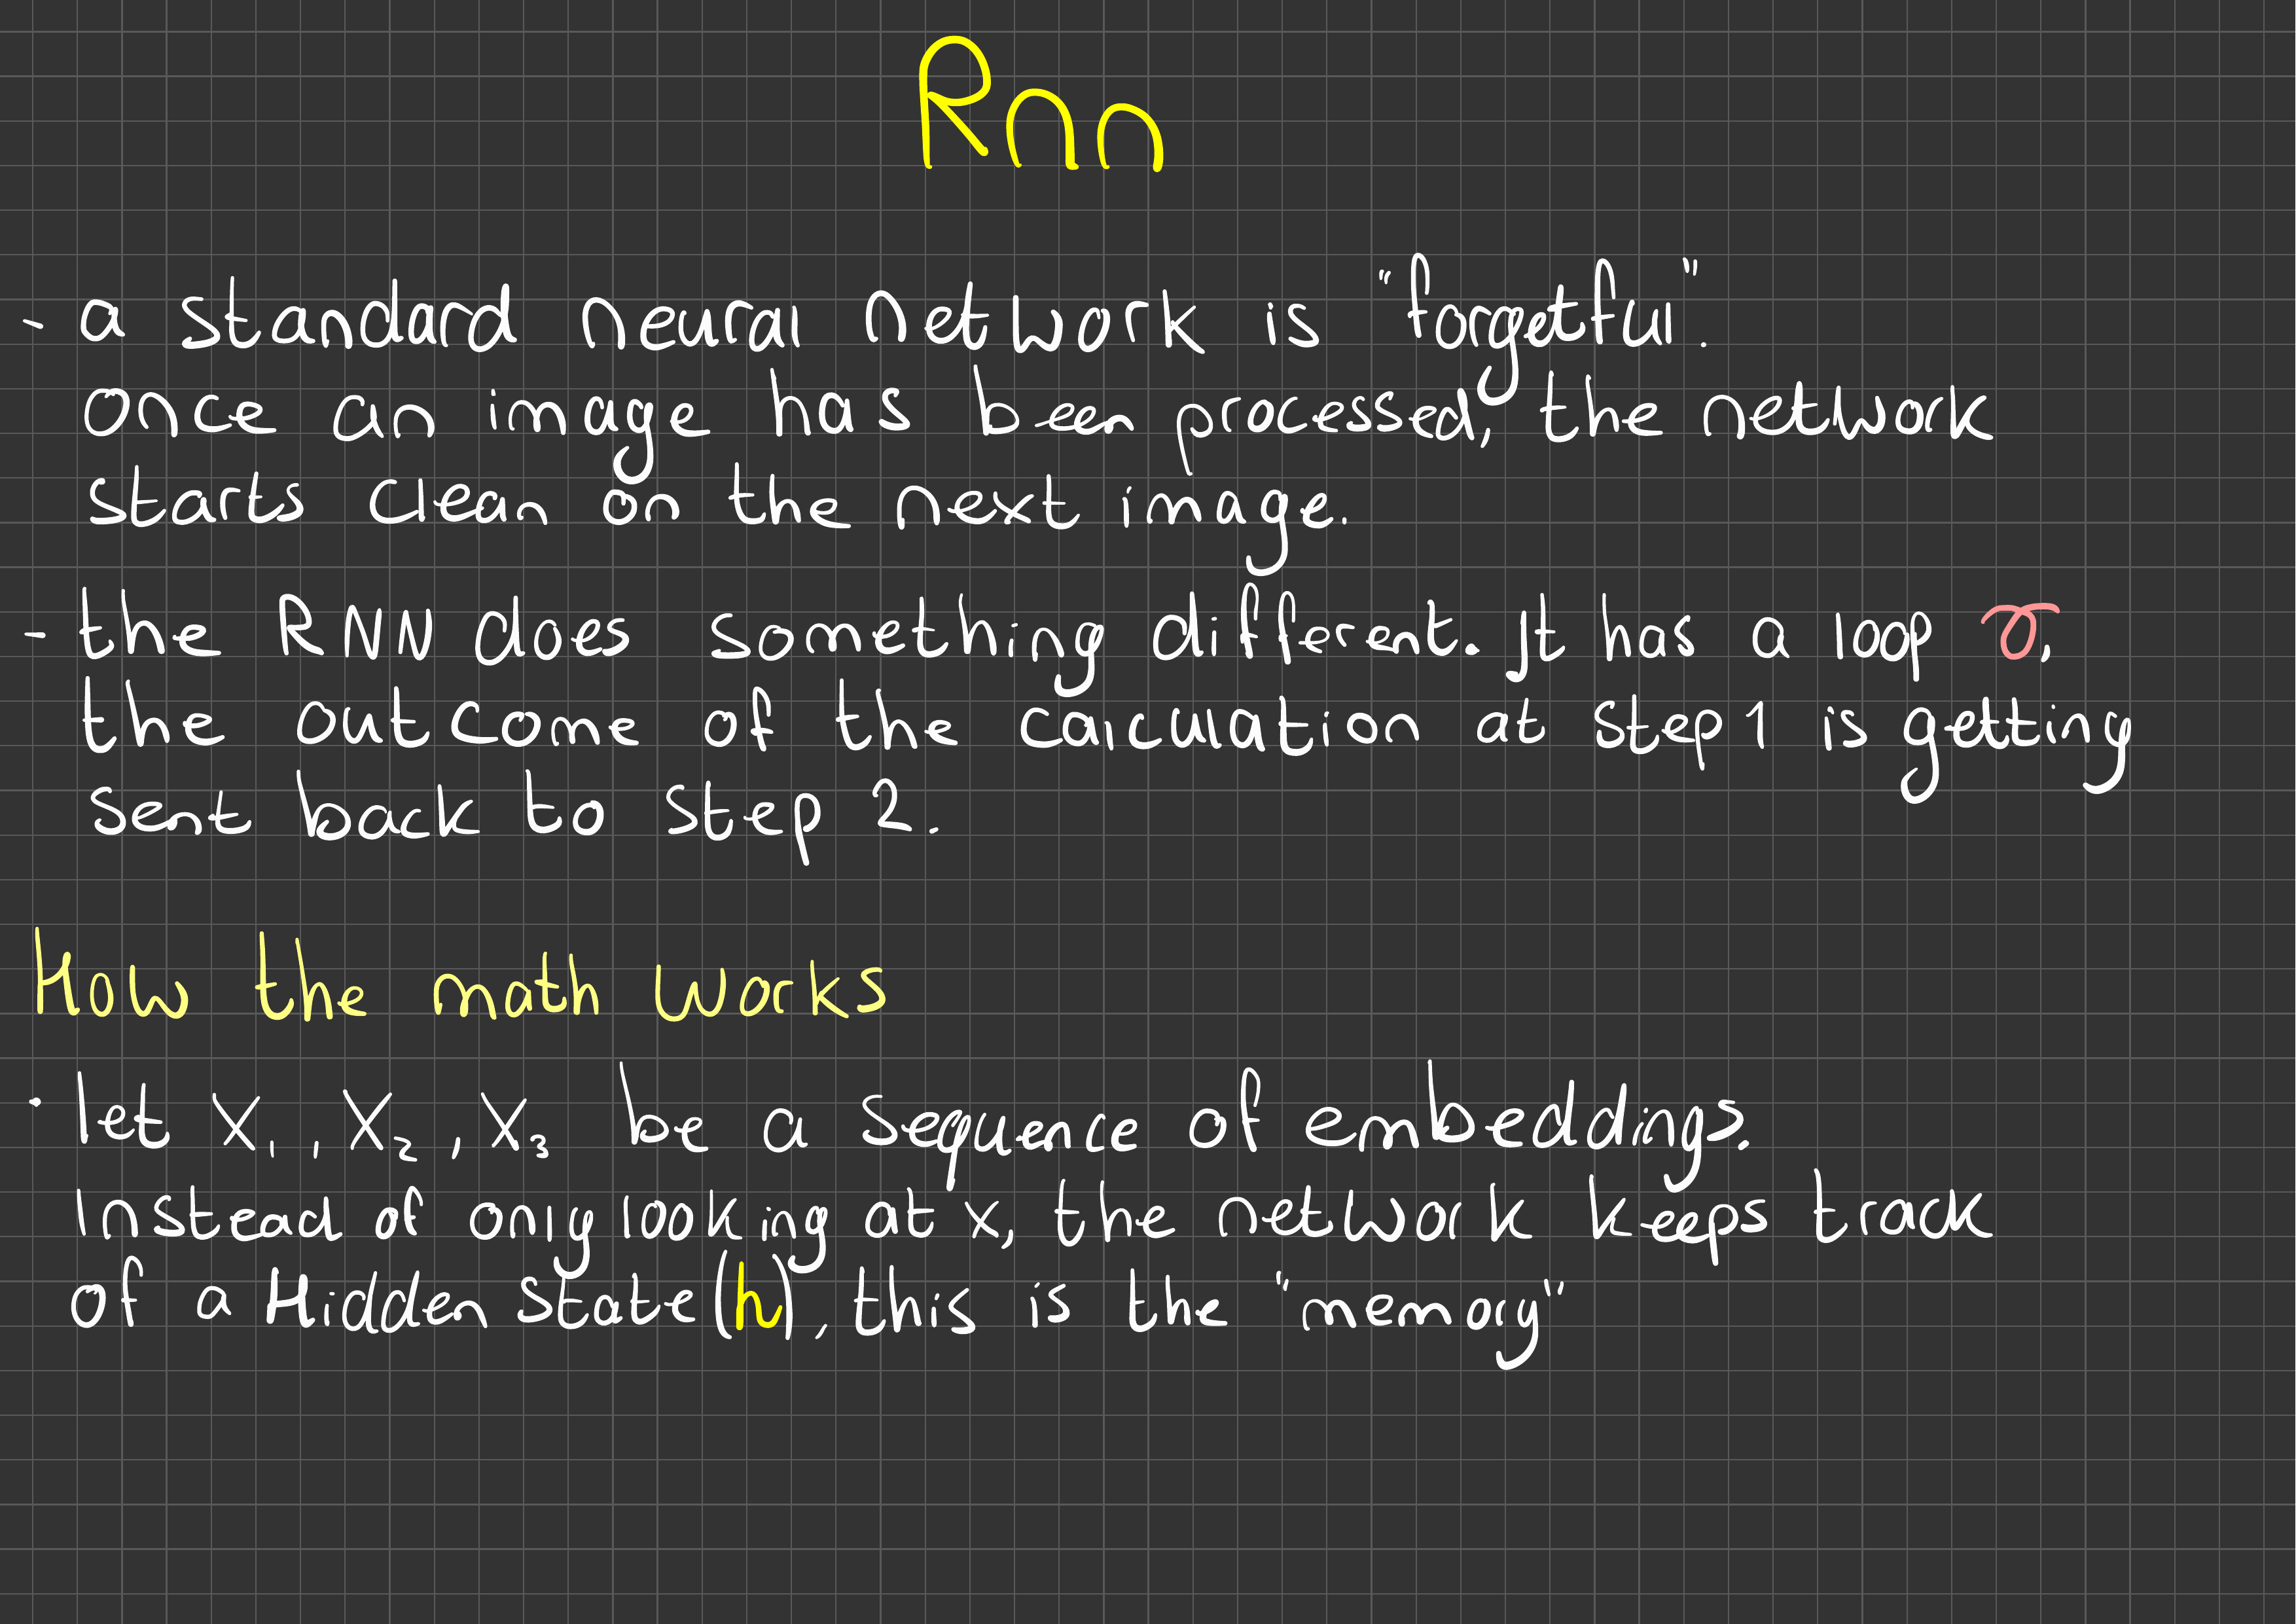 Rnn
- a standard neural network is "forgetful".
once an image has been processed, the network
starts clean on the next image.
- the RNN does something different. It has a loop
the outcome of the calculation at step 1 is getting
sent back to step 2.
How the math works
· let x₁, x₂, x₃ be a sequence of embeddings.
Instead of only looking at x, the network keeps track
of a Hidden State (h), this is the "memory"